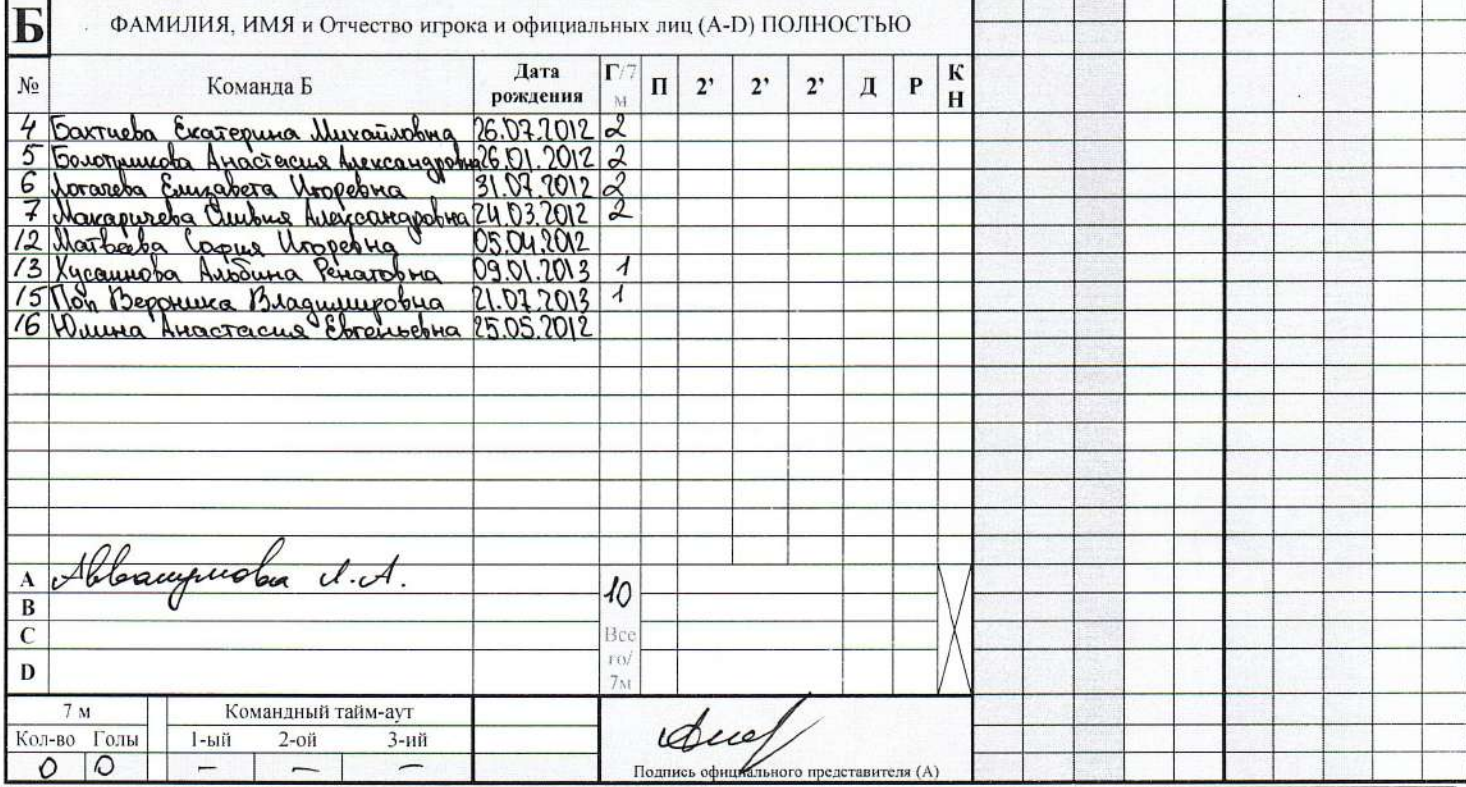 Б ФАМИЛИЯ, ИМЯ и Отчество игрока и официальных лиц (A-D) ПОЛНОСТЬЮ
№ Команда Б Дата рождения Г/7 м П 2' 2' 2' Д Р К Н
4 Бактиева Екатерина Михайловна 26.07.2012 2
5 Болотникова Анастасия Александровна 26.01.2012 2
6 Логачева Елизавета Игоревна 31.07.2012 2
7 Макаричева Оливия Александровна 24.03.2012 2
12 Матвеева София Игоревна 05.04.2012
13 Хусаинова Альбина Ренатовна 09.01.2013 1
15 Поп Вероника Владимировна 21.07.2013 1
16 Юлина Анастасия Евгеньевна 25.05.2012
A Аввакумова И.А. 10
B
C Все
го/
D 7м
7 м Командный тайм-аут
Кол-во Голы 1-ый 2-ой 3-ий
0 0 – – –
Подпись официального представителя (А)